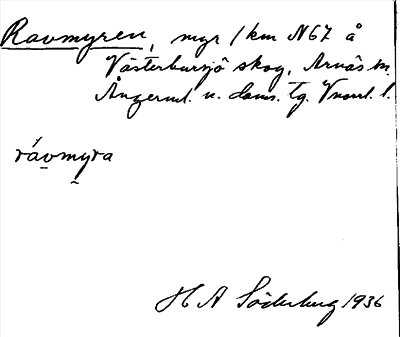 Ravmyren, myr 1 km N67 å
Västerbursjö skog, Arnäs sn.
Ångerml. n. doms. tg. Vnorrl. l.
rávmyra
H A Söderberg 1936